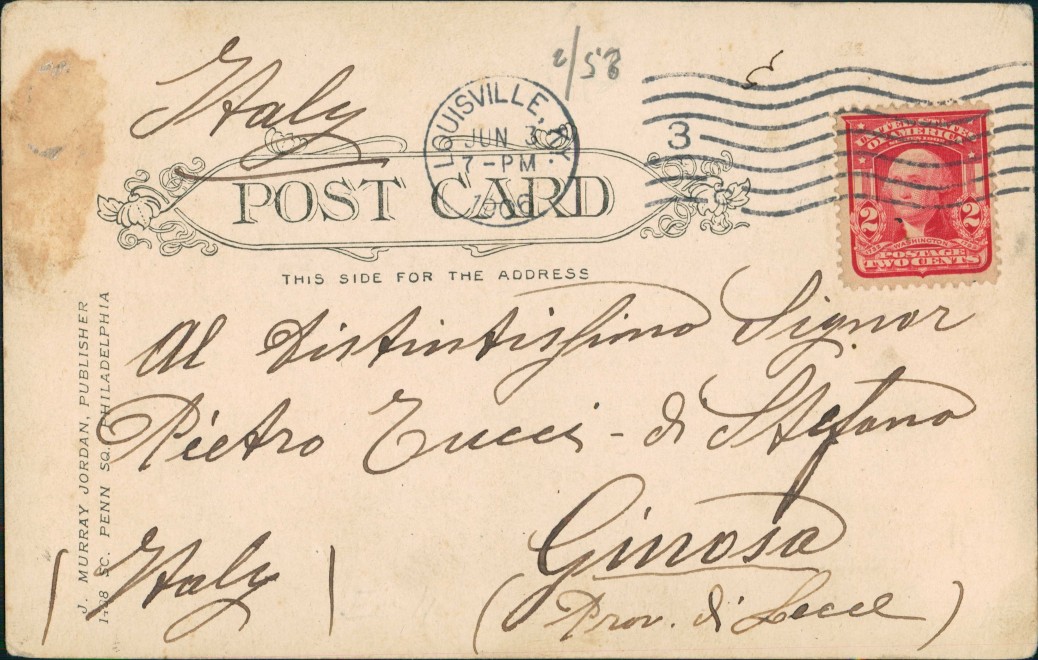 2/58
Italy
LOUISVILLE, KY.
JUN 3
7-PM
1906
3
UNITED STATES
OF AMERICA
2 2
WASHINGTON
POSTAGE
TWO CENTS
POST CARD
THIS SIDE FOR THE ADDRESS
Al Distintissimo Signor
Pietro Tucci - di Stefano
Ginosa
(Prov. di Lecce)
Italy
J. MURRAY JORDAN, PUBLISHER
1438 SO. PENN SQ. PHILADELPHIA